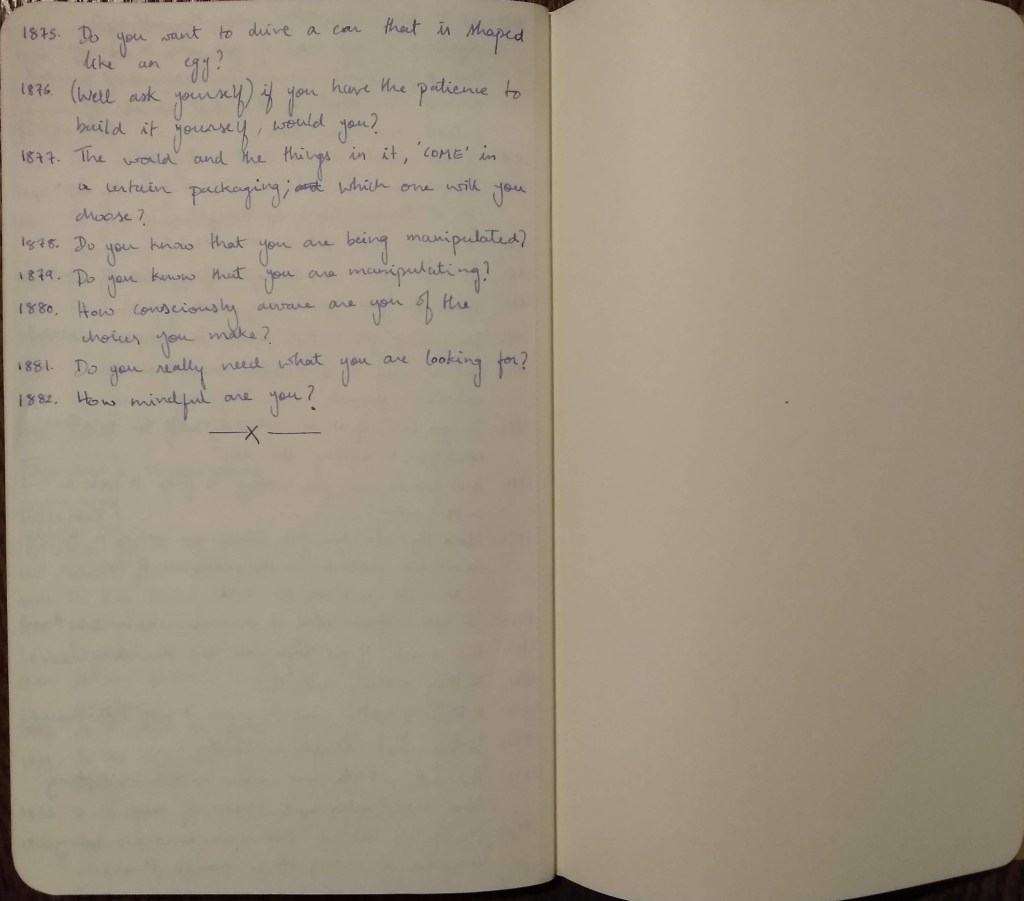 1875. Do you want to drive a car that is shaped
like an egg?
1876. (Well ask yourself) if you have the patience to
build it yourself, would you?
1877. The world and the things in it, 'COME' in
a certain packaging; which one will you
choose?
1878. Do you know that you are being manipulated?
1879. Do you know that you are manipulating?
1880. How consciously aware are you of the
choices you make?
1881. Do you really need what you are looking for?
1882. How mindful are you?
—X—